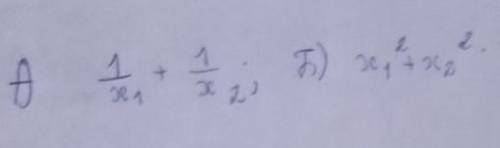 А) 1/x₁ + 1/x₂; Б) x₁² + x₂².